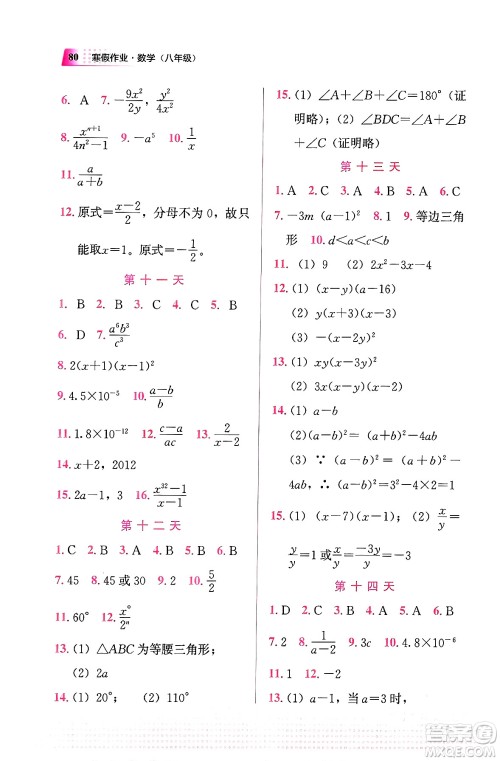 80 寒假作业·数学（八年级）
6. A 7. -9x²/2y, y²/4x²
8. xⁿ⁺¹/4n²-1 9. -a⁵ 10. 1/x
11. a/a+a
12. 原式=x-2/2, 分母不为0，故只
能取x=1。原式=-1/2
第十一天
1. B 2. C 3. D 4. C 5. B
6. D 7. a⁶b³/c³
8. 2(x+1)(x-1)²
9. 4.5×10⁻⁵ 10. a-b/b
11. 1.8×10⁻¹² 12. c-a/ac 13. 2/x-2
14. x+2, 2012
15. 2a-1, 3 16. x³²-1/x-1
第十二天
1. C 2. B 3. C 4. C 5. D 6. B
7. 45 8. 45或30 9. 2 10. 5/2
11. 60° 12. x°/2ⁿ
13. （1）△ABC为等腰三角形；
（2）2a
14. （1）20°； （2）110°
15. （1）∠A+∠B+∠C=180°（证
明略）；（2）∠BDC=∠A+∠B
+∠C（证明略）
第十三天
1. A 2. B 3. D 4. D 5. C 6. A
7. -3m(a-1)² 8. 1 9. 等边三角
形 10. d<a<c<b
11. （1）9 （2）2x²-3x
12. （1）(x-y)(a-16)
（2）y(x+3)(x-3)
（3）-x(x-y)²
13. （1）xy(x-y)²
（2）3x(x-y)²
14. （1）a-b
（2）(a+b)²=(a-b)²+4ab
（3）∵(a-b)²=(a+b)²-4ab
∴(a-b)²=3²-4×2=1
15. （1）(x-y)(x+3y) （2）x/y=
y/y=1或x/y=-3y/y=-3
第十四天
1. D 2. C 3. D 4. C 5. A 6. B
7. 2 8. 1/a-2 9. 3c 10. 4.8×10⁻⁶
11. 1 12. -2
13. （1）a-1，当a=3时，